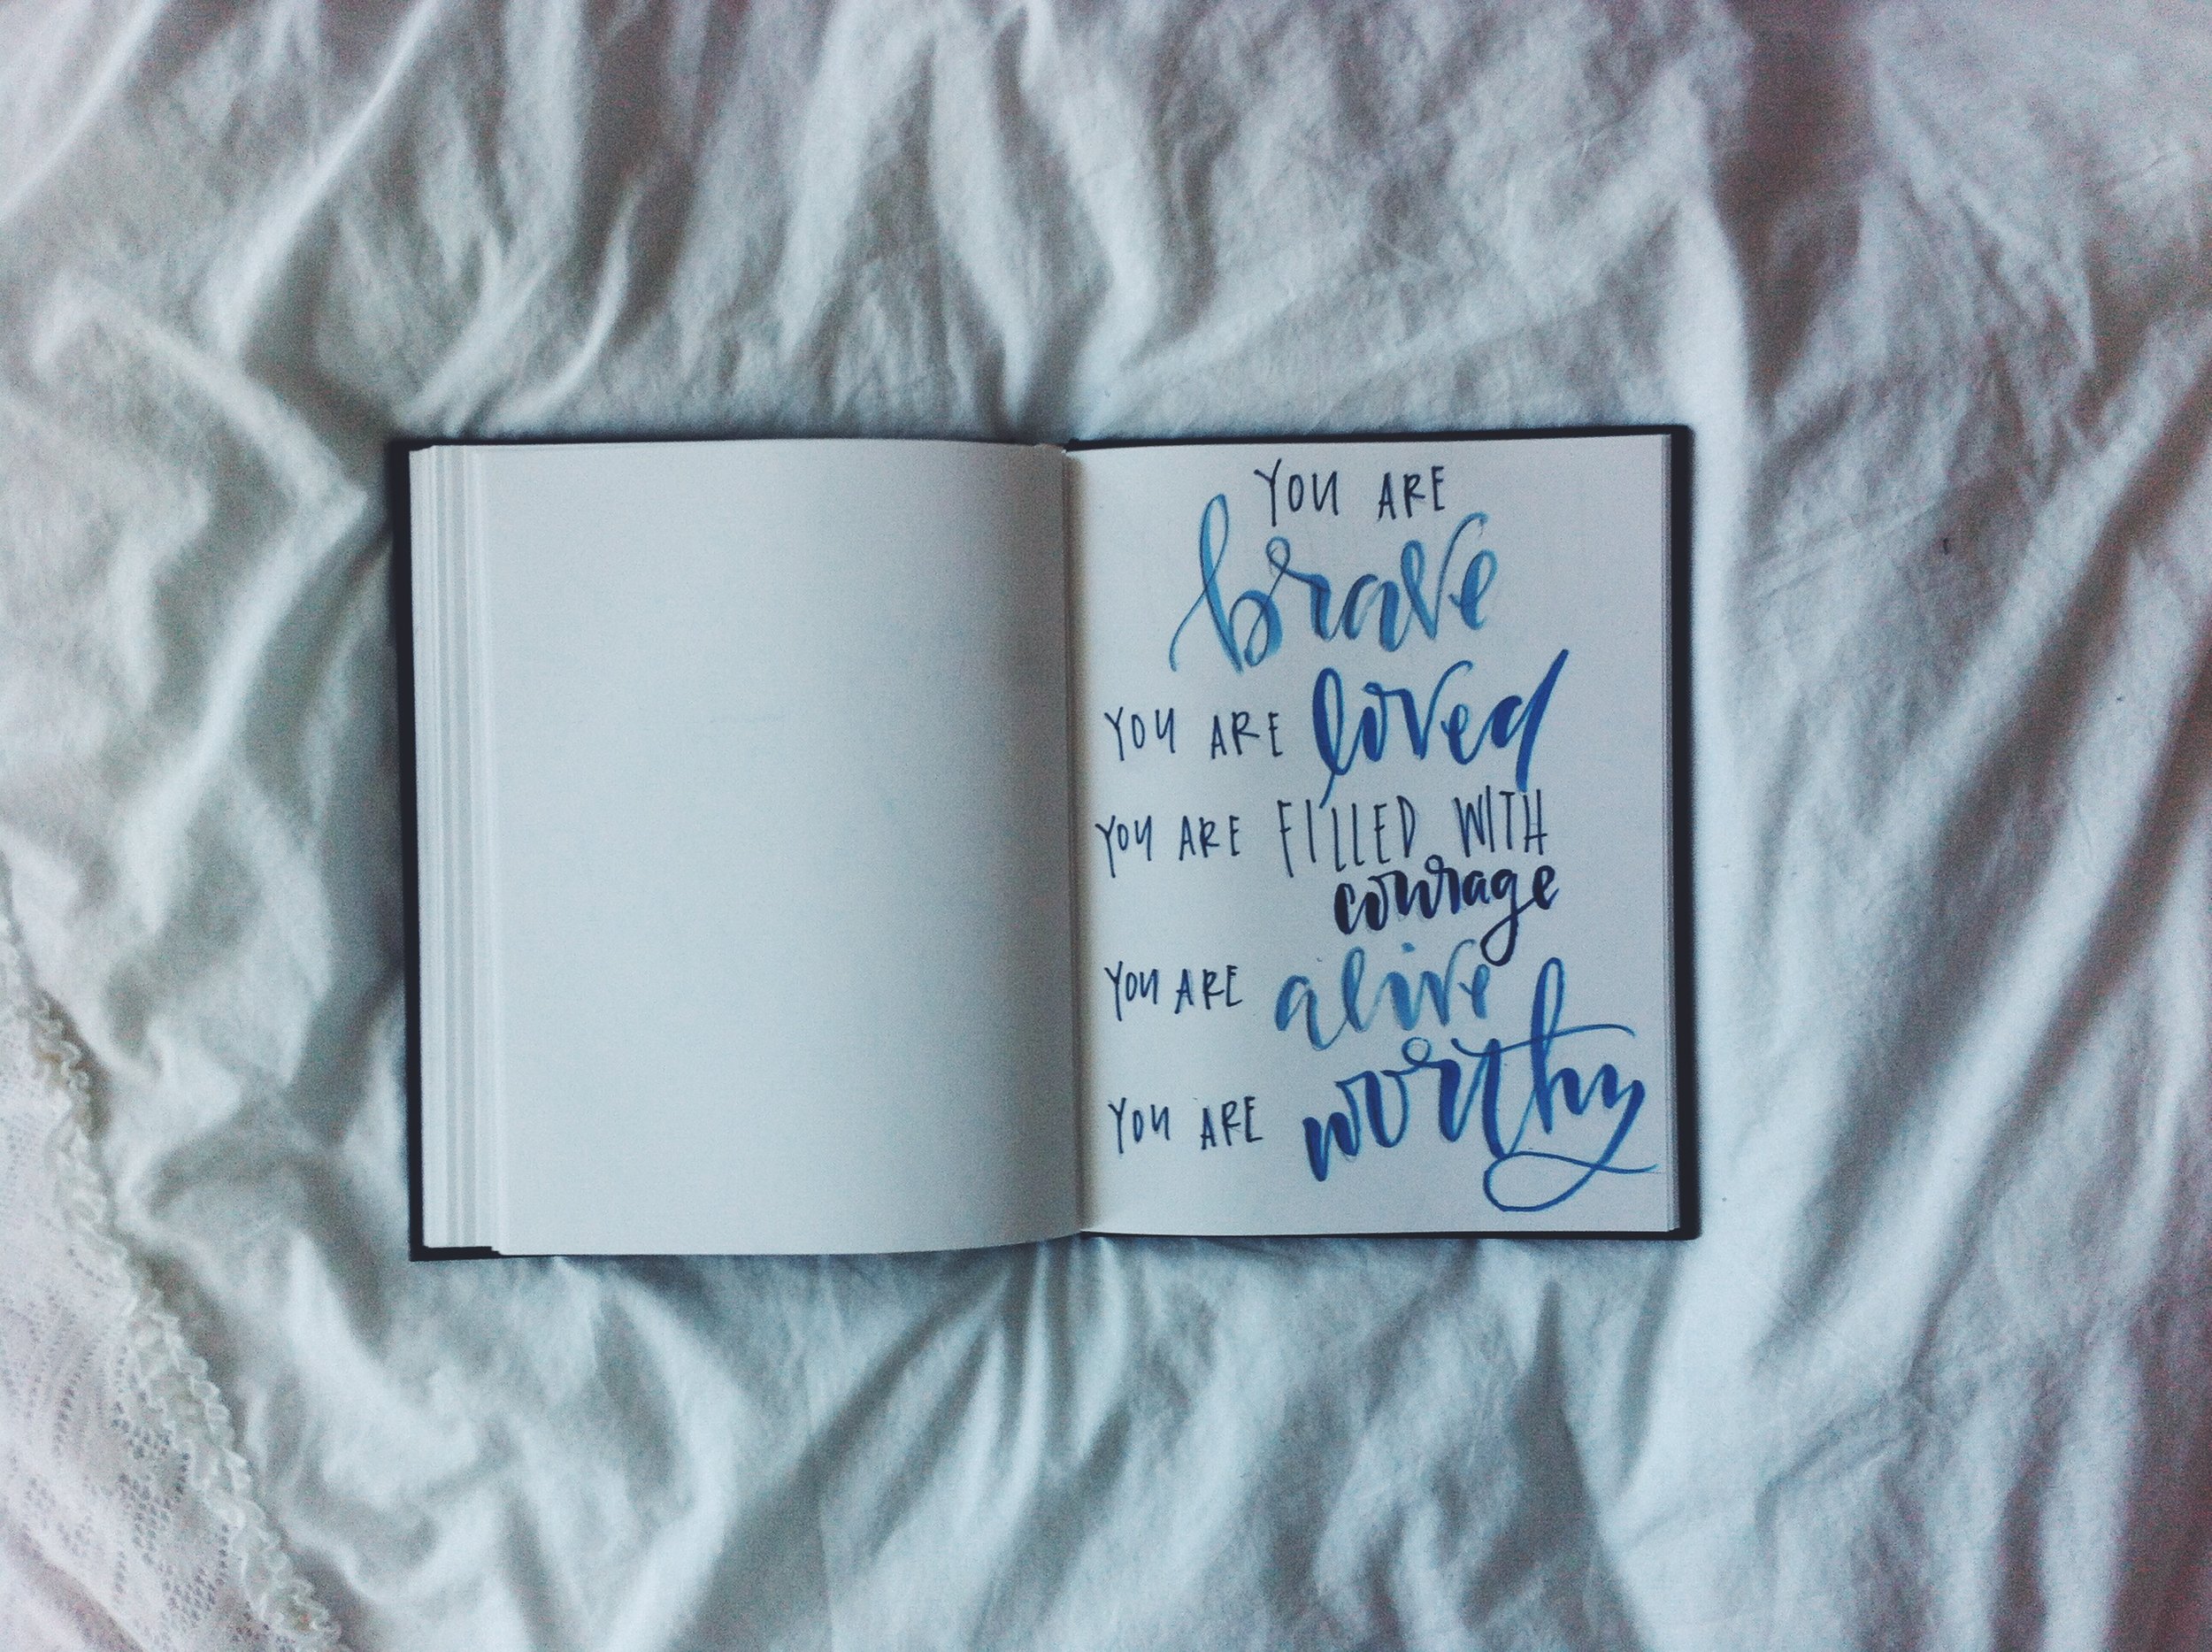 YOU ARE
brave
YOU ARE loved
YOU ARE FILLED WITH
courage
YOU ARE alive
YOU ARE worthy